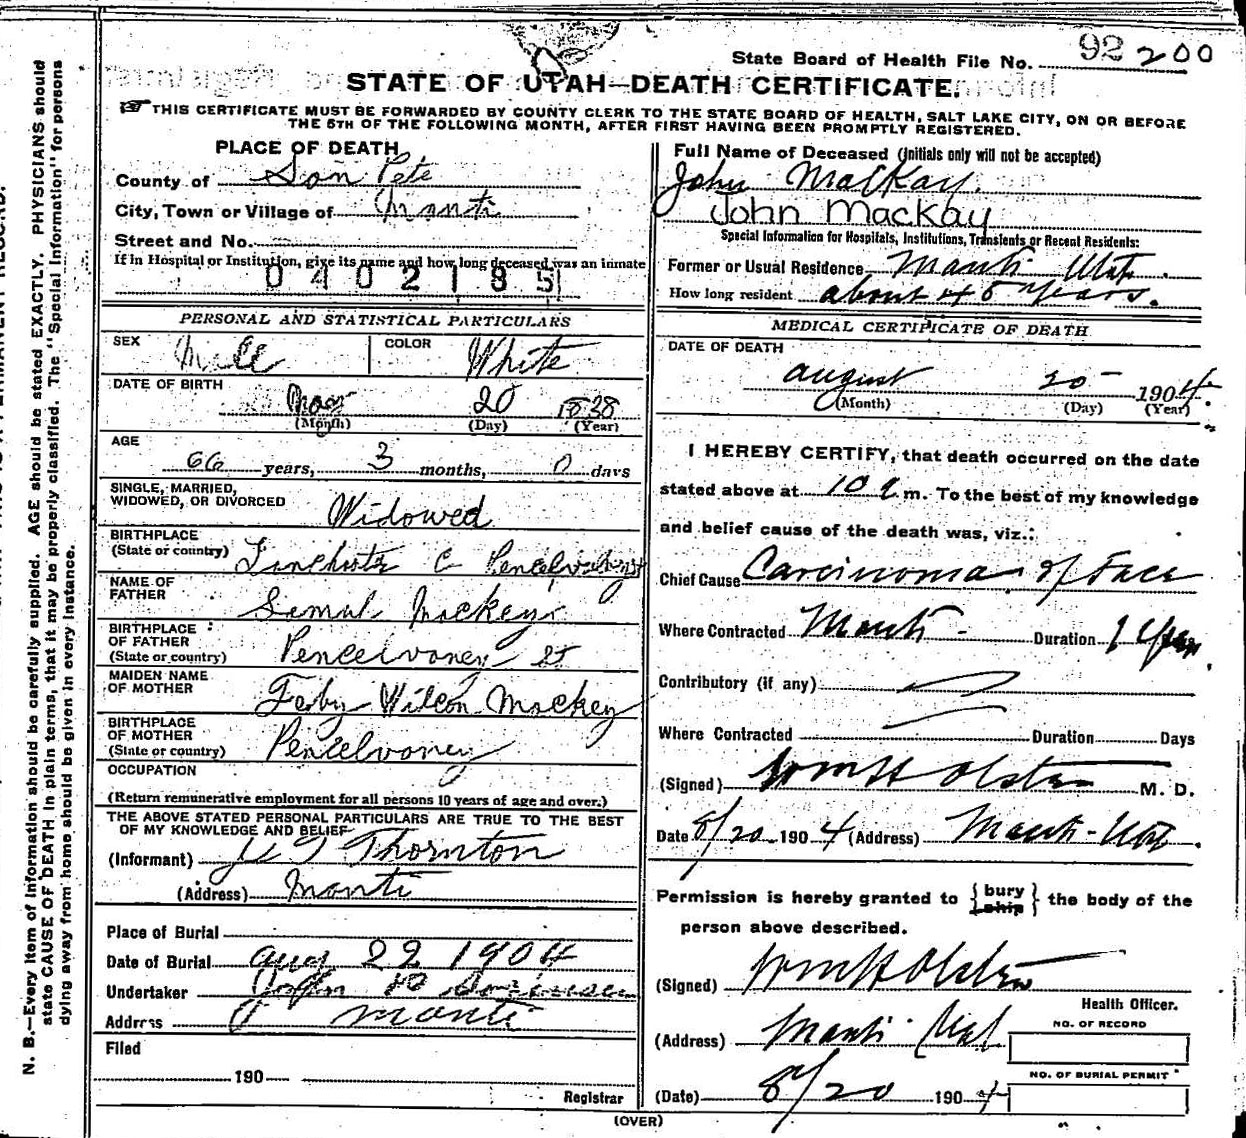 State Board of Health File No. 92 200
STATE OF UTAH—DEATH CERTIFICATE.
THIS CERTIFICATE MUST BE FORWARDED BY COUNTY CLERK TO THE STATE BOARD OF HEALTH, SALT LAKE CITY, ON OR BEFORE
THE 5TH OF THE FOLLOWING MONTH, AFTER FIRST HAVING BEEN PROMPTLY REGISTERED.
PLACE OF DEATH
County of San Pete
City, Town or Village of Manti
Street and No.
If in Hospital or Institution, give its name and how long deceased was an inmate
0402185
PERSONAL AND STATISTICAL PARTICULARS
SEX Male COLOR White
DATE OF BIRTH
May 20 1838
(Month) (Day) (Year)
AGE
66 years, 3 months, 0 days
SINGLE, MARRIED,
WIDOWED, OR DIVORCED Widowed
BIRTHPLACE
(State or country)
NAME OF
FATHER Semul Mackey
BIRTHPLACE
OF FATHER
(State or country) Pencelvoney St
MAIDEN NAME
OF MOTHER Feby Wilcon Mackey
BIRTHPLACE
OF MOTHER
(State or country) Pencelvoney
OCCUPATION
(Return remunerative employment for all persons 10 years of age and over.)
THE ABOVE STATED PERSONAL PARTICULARS ARE TRUE TO THE BEST
OF MY KNOWLEDGE AND BELIEF
(Informant) Thornton
(Address) Monti
Place of Burial
Date of Burial Aug 22 1904
Undertaker John
Address Manti
Filed
190
Registrar
Full Name of Deceased (Initials only will not be accepted)
John MacKay.
John MacKay
Special Information for Hospitals, Institutions, Transients or Recent Residents:
Former or Usual Residence Manti Utah.
How long resident about 45 years.
MEDICAL CERTIFICATE OF DEATH
DATE OF DEATH
August 20 1904.
(Month) (Day) (Year)
I HEREBY CERTIFY, that death occurred on the date
stated above at 10 a m. To the best of my knowledge
and belief cause of the death was, viz.:
Chief Cause Carcinoma of Face
Where Contracted Manti Duration 1 Year
Contributory (if any)
Where Contracted Duration Days
(Signed) Wm H Olsten M. D.
Date 8/20 1904 (Address) Manti-Utah.
Permission is hereby granted to {bury ship} the body of the
person above described.
(Signed) Wm H Olsten
Health Officer.
(Address) Manti Utah
NO. OF RECORD
NO. OF BURIAL PERMIT
(Date) 8/20 1904
(OVER)
N. B.—Every item of information should be carefully supplied. AGE should be stated EXACTLY. PHYSICIANS should
state CAUSE OF DEATH in plain terms, that it may be properly classified. The "Special Information" for persons
dying away from home should be given in every instance.